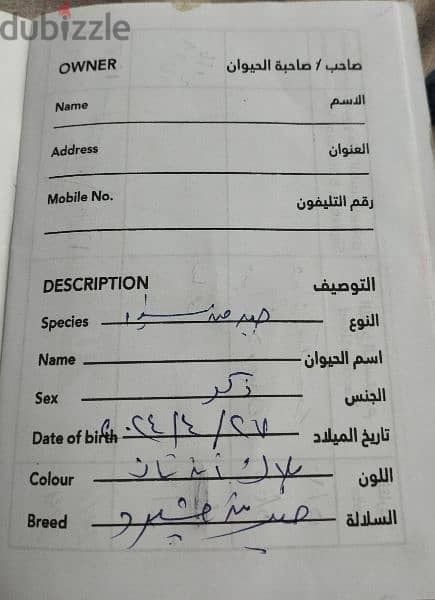 dubizzle
OWNER صاحب / صاحبة الحيوان
Name الاسم
Address العنوان
Mobile No. رقم التليفون
DESCRIPTION التوصيف
Species النوع
Name اسم الحيوان
Sex ذكر الجنس
Date of birth ٢٤/٤/٢٧ تاريخ الميلاد
Colour بلاك اند تان اللون
Breed السلالة